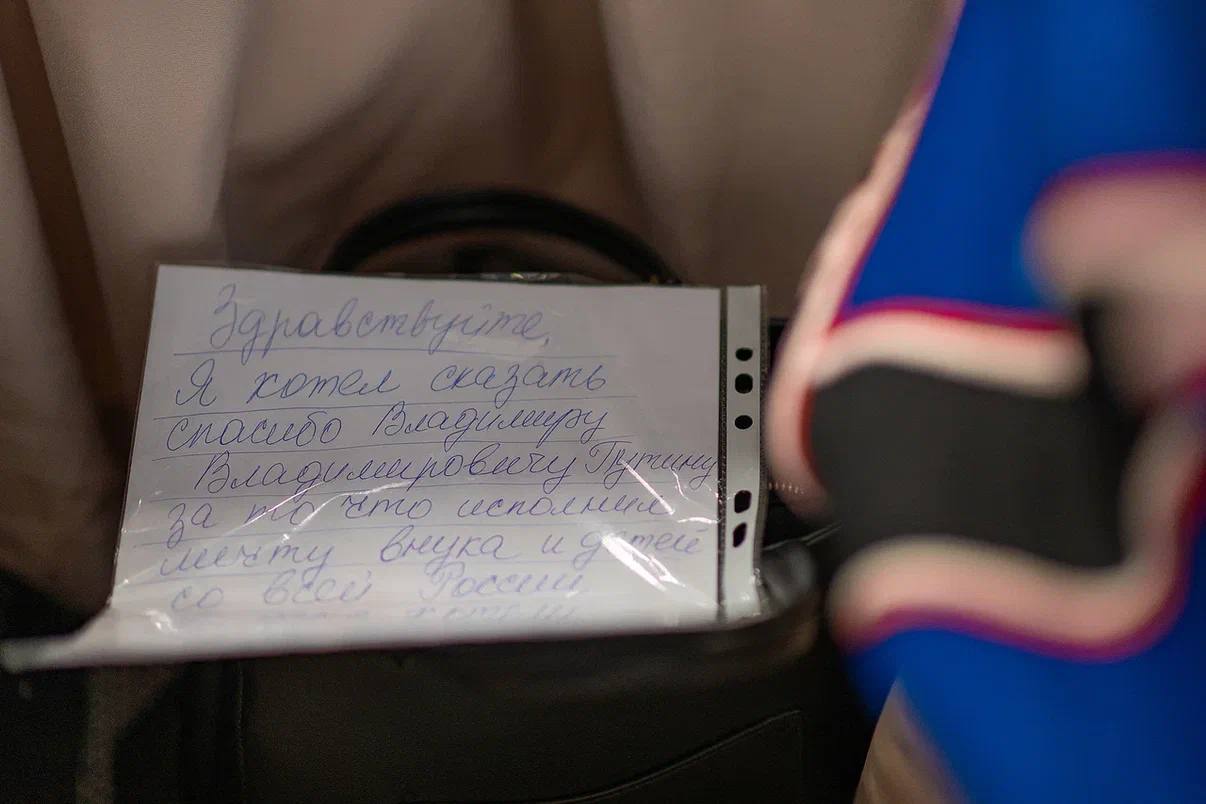 Здравствуйте,
Я хотел сказать
спасибо Владимиру
Владимировичу Путину
за то что исполнил
мечту внука и детей
со всей России